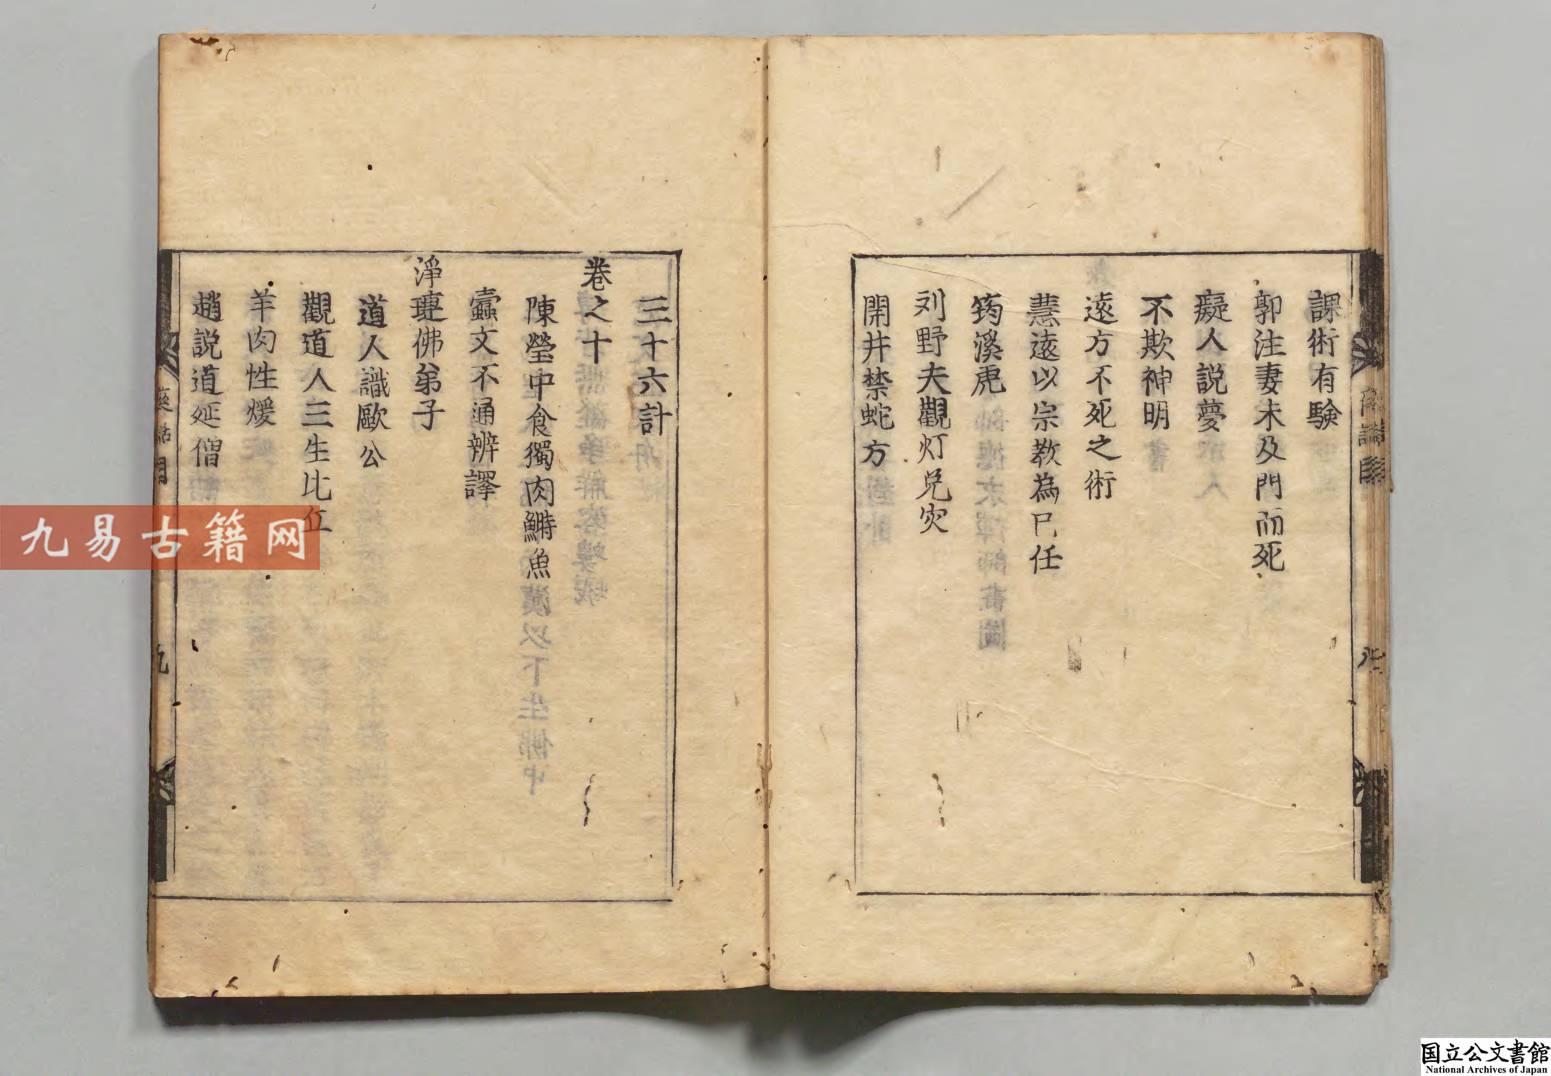 課術有驗
郭注妻未及門而死
癡人説夢
不欺神明
遠方不死之術
慧遠以宗教為己任
筠溪虎
刘野夫觀灯兑灾
開井禁蛇方
三十六計
卷之十
陳瑩中食獨肉鰣魚
蠹文不通辨譯
淨璉佛弟子
道人識歐公
觀道人三生比丘
羊肉性煖
趙説道延僧
九
九易古籍网
国立公文書館
National Archives of Japan